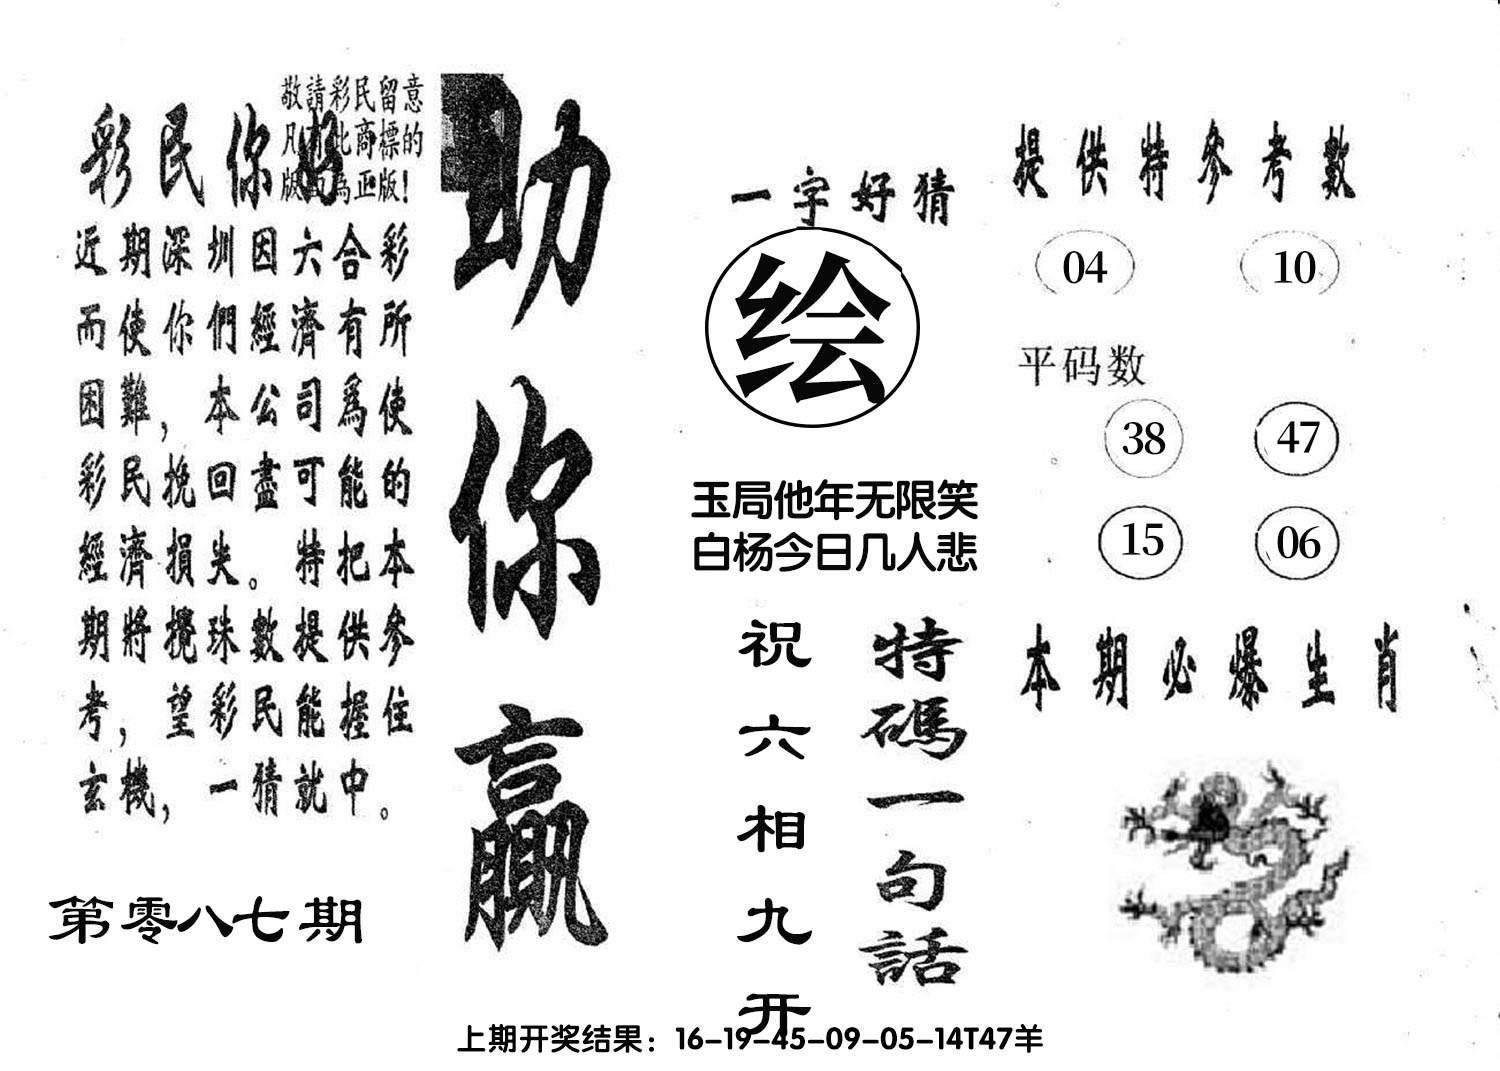 敬請彩民留意
凡有此商標的
版面為正版！
彩民你好
近期深圳因六合彩
而使你們經濟有所
困難，本公司爲使
彩民挽回盡可能的
經濟損失。特把本
期將攪珠數提供參
考，望彩民能握住
玄機，一猜就中。
第零八七期
助你赢
一字好猜
绘
玉局他年无限笑
白杨今日几人悲
特碼一句話
祝六相九开
提供特參考數
04 10
平码数
38 47
15 06
本期必爆生肖
上期开奖结果：16-19-45-09-05-14T47羊